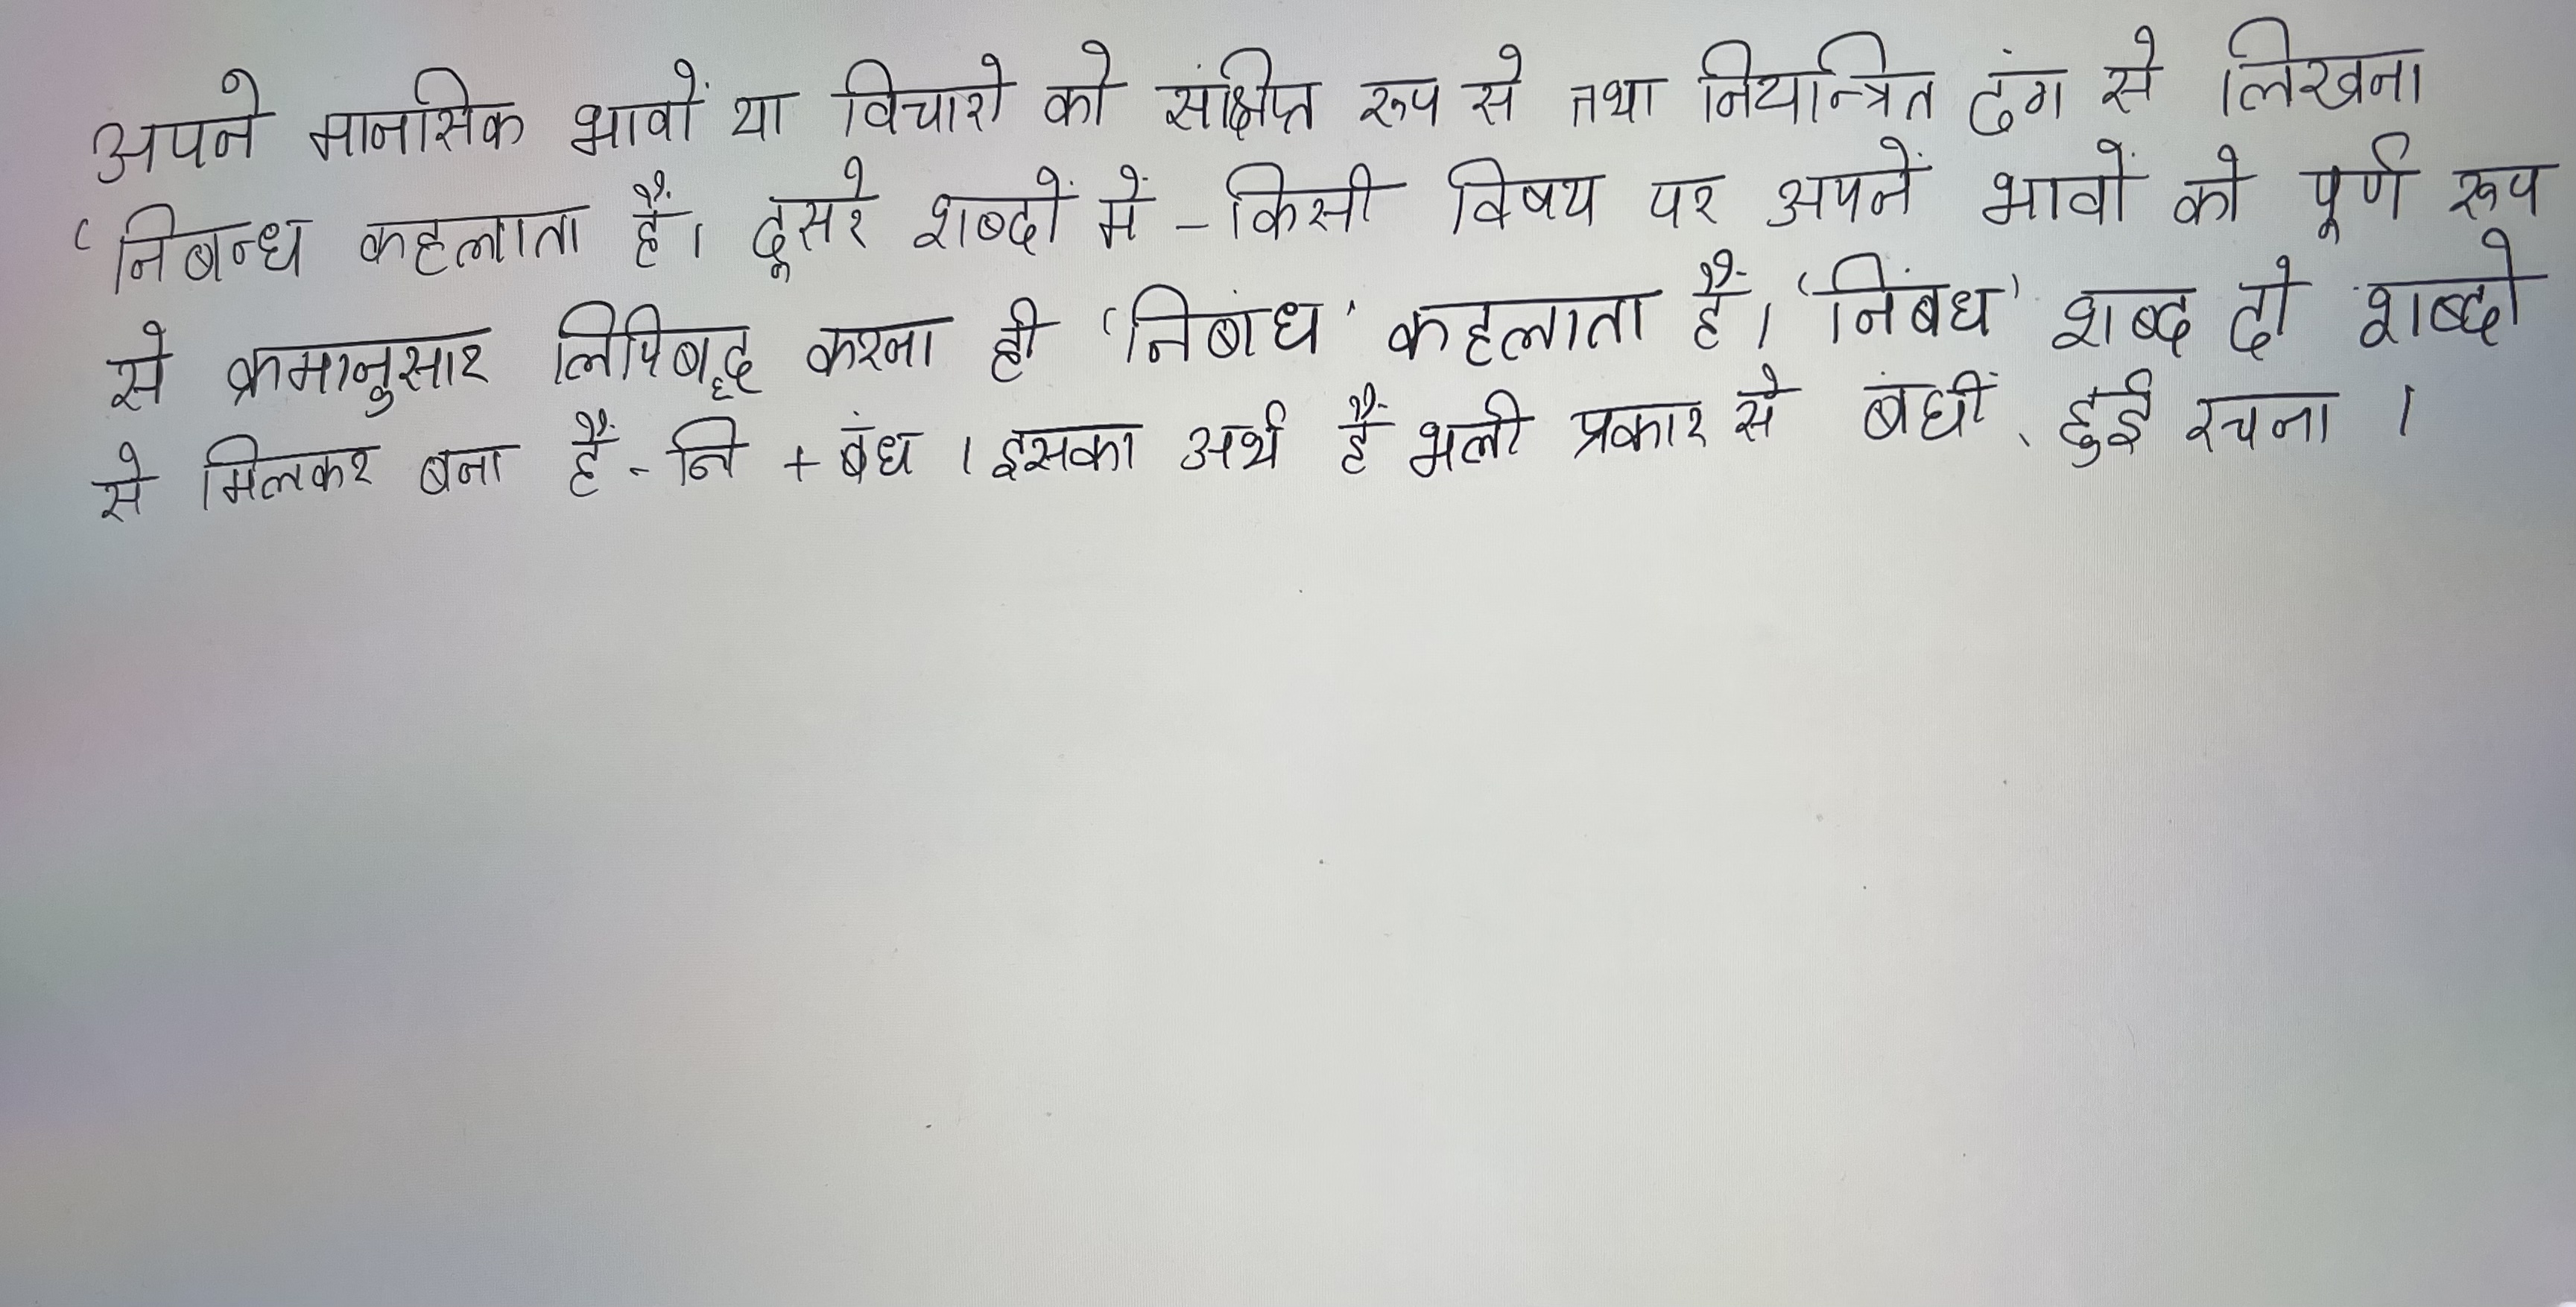 अपने मानसिक भावों या विचारो को संक्षिप्त रूप से तथा नियन्त्रित ढंग से लिखना
‘निबन्ध कहलाता हैं। दूसरे शब्दों में - किसी विषय पर अपनें भावों को पूर्ण रूप
से क्रमानुसार लिपिबद्ध करना ही ‘निबंध’ कहलाता हैं। ‘निंबंध’ शब्द दो शब्दो
से मिलकर बना हैं - नि + बंध । इसका अर्थ हैं भली प्रकार से बंधीं हुई रचना ।